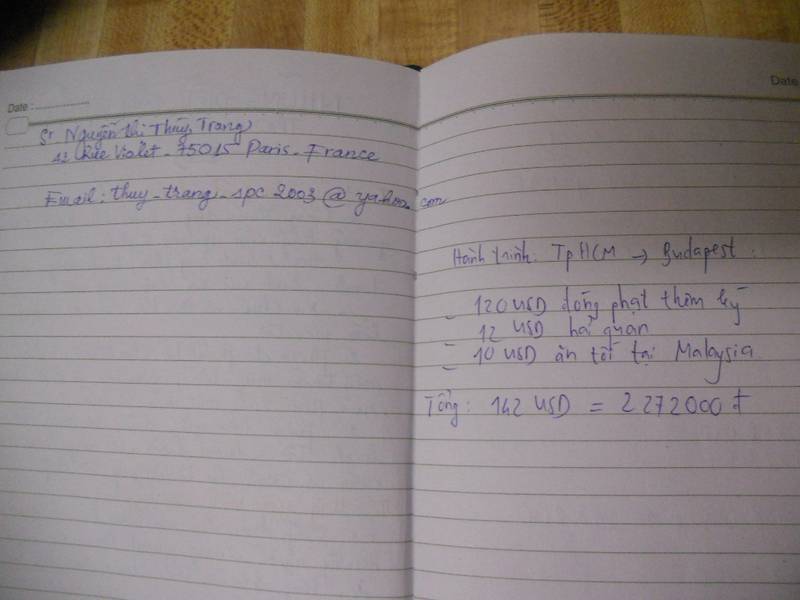 Date :
Sr Nguyễn thị Thùy Trang
12 Rue Violet - 75015 Paris - France
Email: thuy-trang-spc 2003 @ yahoo.com
Date
Hành trình: Tp HCM → Budapest.
- 120 USD đóng phạt thêm ký
- 12 USD hải quan
- 10 USD ăn tối tại Malaysia
Tổng: 142 USD = 2 272 000 đ